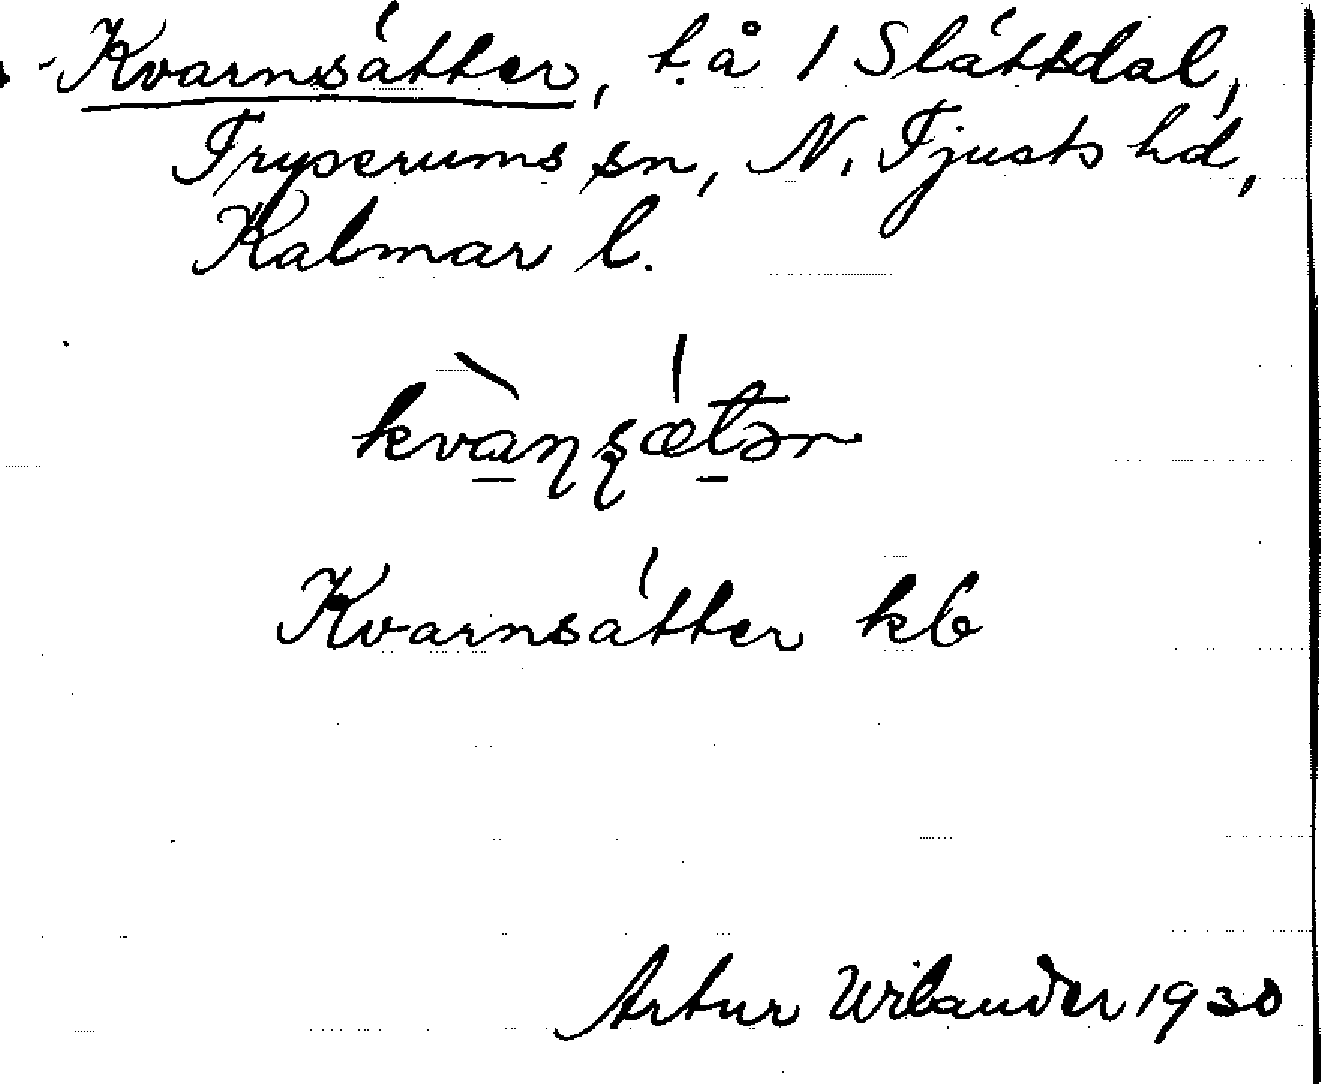 Kvarnsätter, t.å 1 Slättdal,
Tryserums sn, N. Tjusts hd,
Kalmar l.
kvàɳʂǽtər
Kvarnsätter kb
Artur Wilander 1930